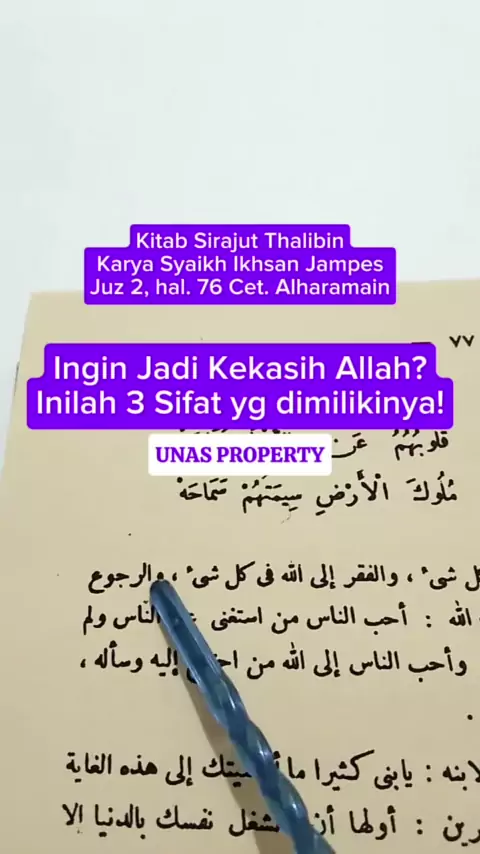 Kitab Sirajut Thalibin
Karya Syaikh Ikhsan Jampes
Juz 2, hal. 76 Cet. Alharamain
٧٧
Ingin Jadi Kekasih Allah?
Inilah 3 Sifat yg dimilikinya!
قُلُوبُهُمُ عَنْ
UNAS PROPERTY
مُلُوكَ الْأَرْضِ سِيمَتُهُمْ سَمَاحَهْ
كل شىء ، والفقر إلى الله فى كل شىء ، والرجوع
الله : أحب الناس من استغنى الناس ولم
وأحب الناس إلى الله من إليه وسأله ،
.
لابنه : يابنى كثيرا ما إلى هذه الغاية
: أولها أن نفسك بالدنيا إلا